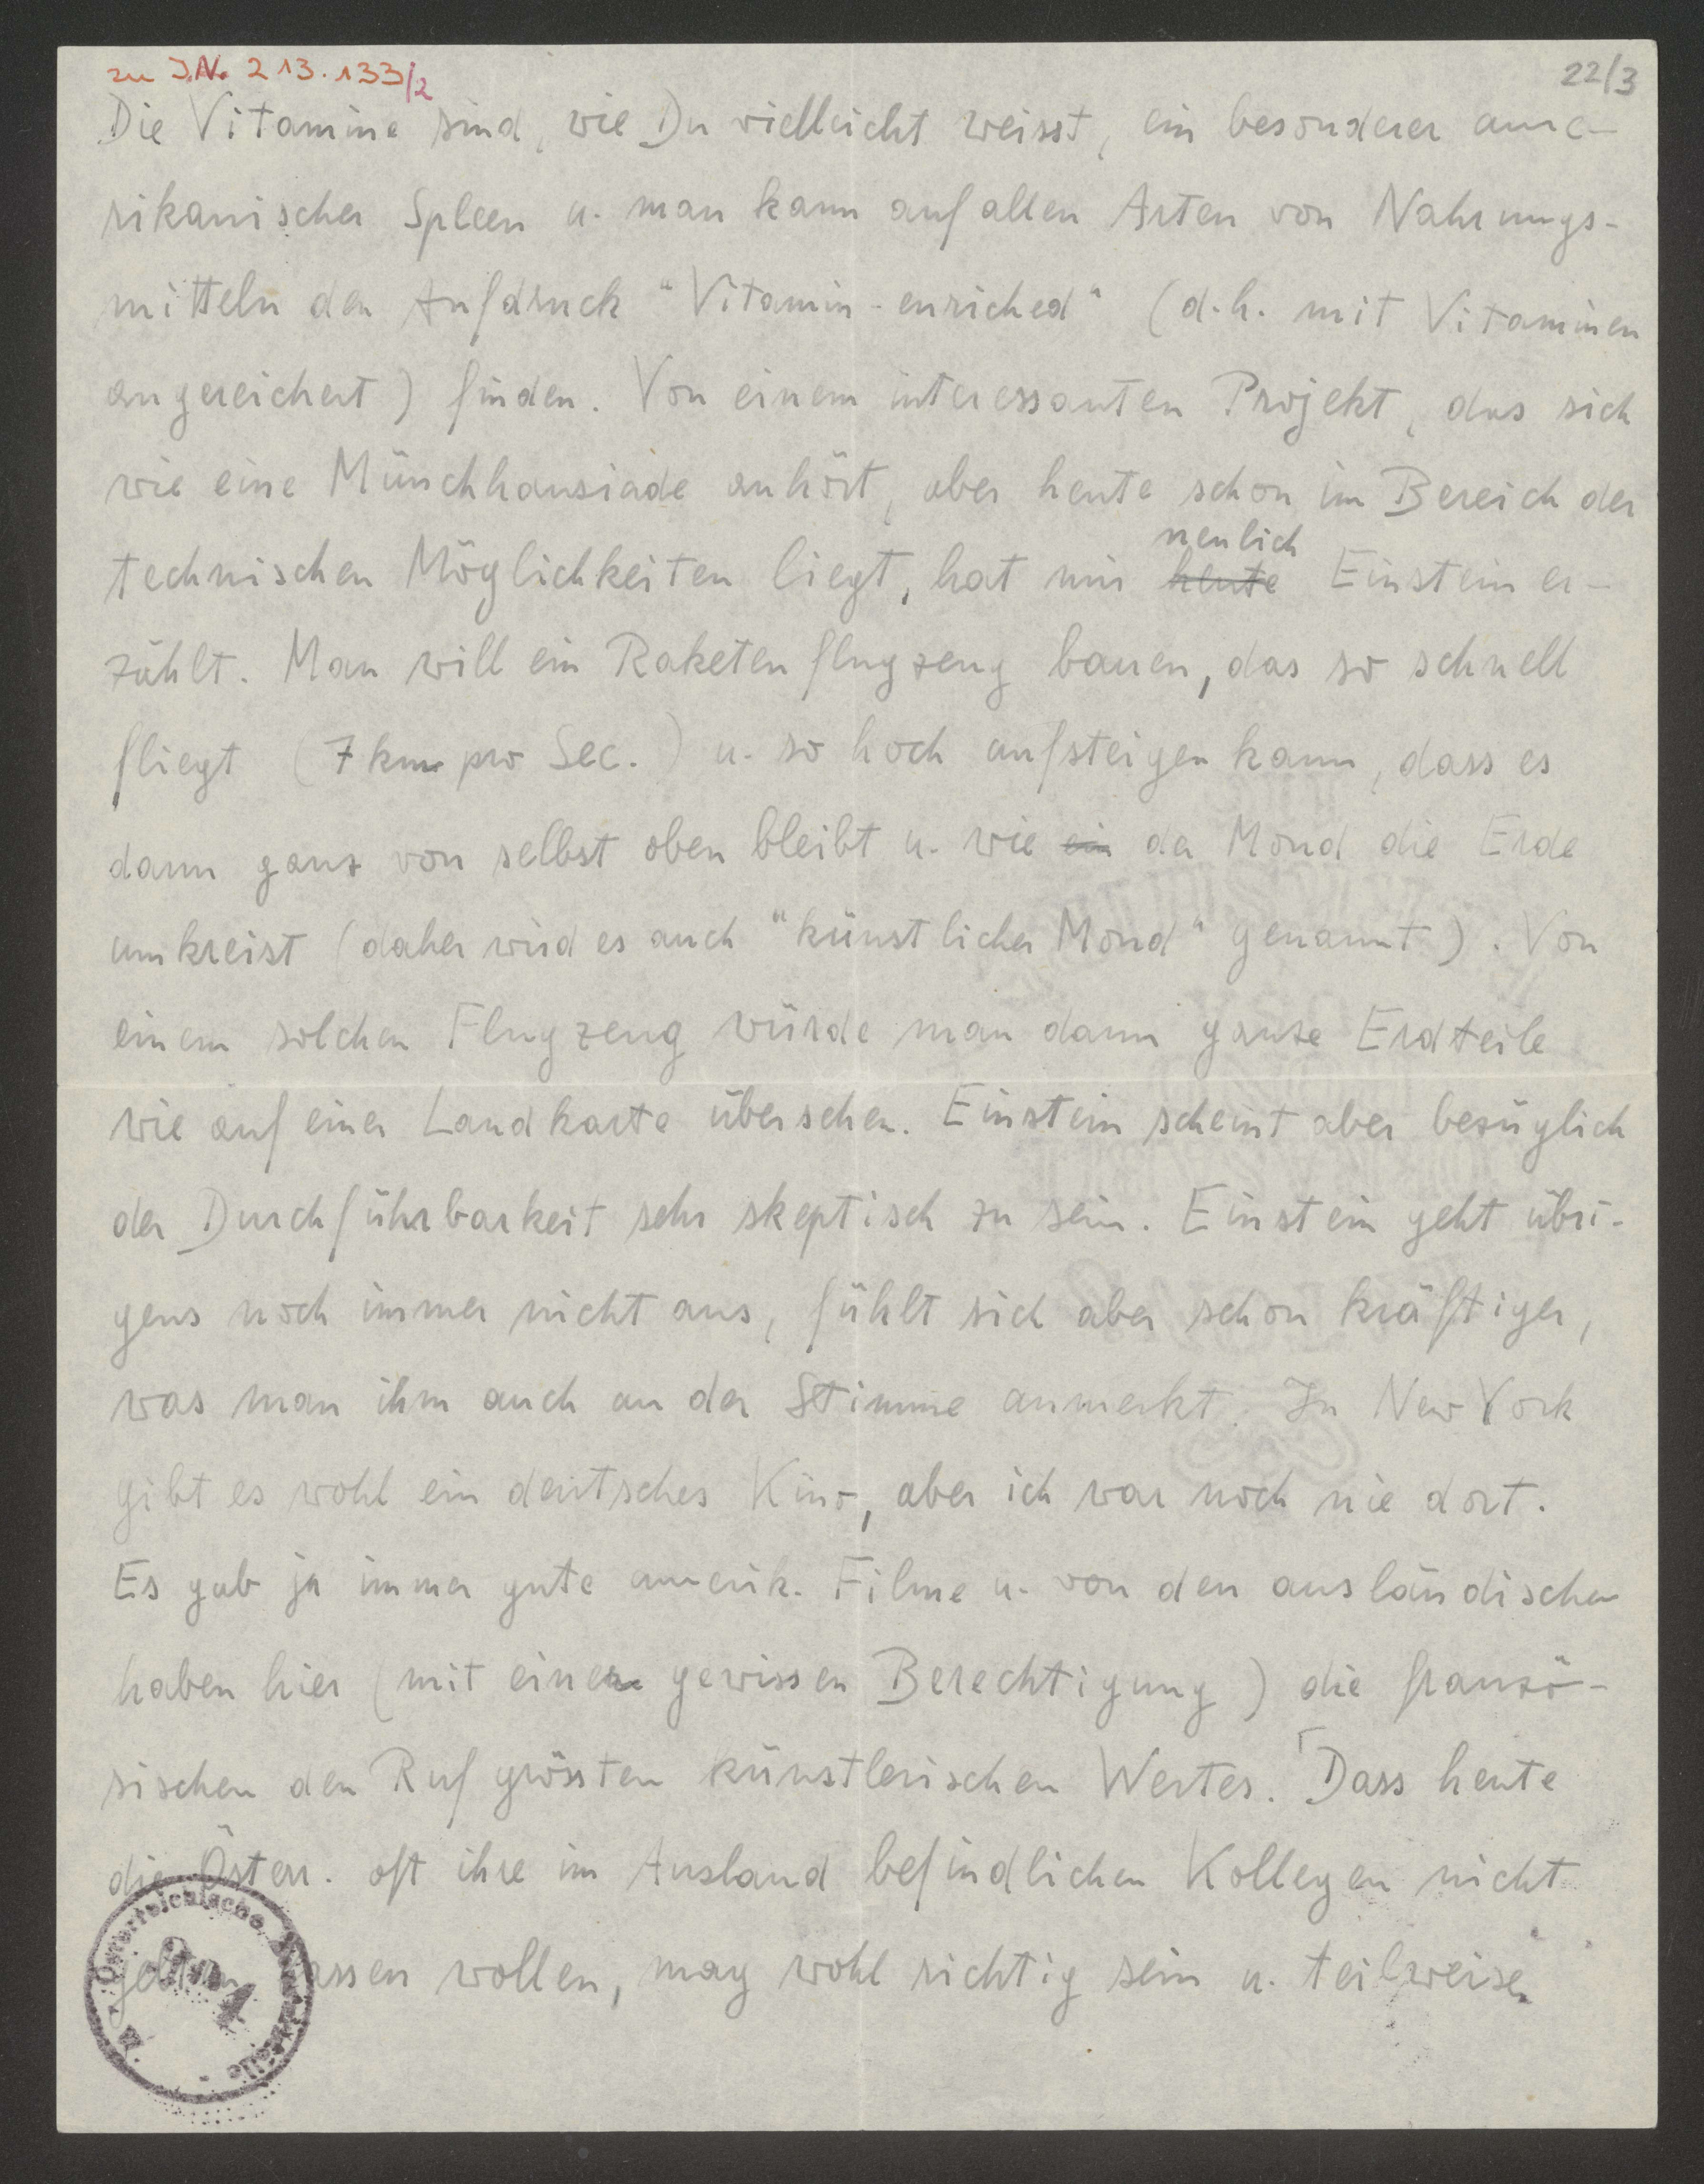 zu I.N. 213.133/2
22/3
Die Vitamine sind, wie Du vielleicht weisst, ein besonderer ame-
rikanischer Spleen u. man kann auf allen Arten von Nahrungs-
mitteln den Aufdruck "Vitamin-enriched" (d.h. mit Vitaminen
angereichert) finden. Von einem interessanten Projekt, das sich
wie eine Münchhausiade anhört, aber heute schon im Bereich der
neulich
technischen Möglichkeiten liegt, hat mir heute Einstein er-
zählt. Man will ein Raketenflugzeug bauen, das so schnell
fliegt (7 km pro Sec.) u. so hoch aufsteigen kann, dass es
dann ganz von selbst oben bleibt u. wie ein der Mond die Erde
umkreist (daher wird es auch "künstlicher Mond" genannt). Von
einem solchen Flugzeug würde man dann ganze Erdteile
wie auf einer Landkarte übersehen. Einstein scheint aber bezüglich
der Durchführbarkeit sehr skeptisch zu sein. Einstein geht übri-
gens noch immer nicht aus, fühlt sich aber schon kräftiger,
was man ihm auch an der Stimme anmerkt. In New York
gibt es wohl ein deutsches Kino, aber ich war noch nie dort.
Es gab ja immer gute amerik. Filme u. von den ausländischen
haben hier (mit einer gewissen Berechtigung) die franzö-
sischen den Ruf grössten künstlerischen Wertes. Dass heute
die Österr. oft ihre im Ausland befindlichen Kollegen nicht
gelten lassen wollen, mag wohl richtig sein u. teilweise
Österreichische